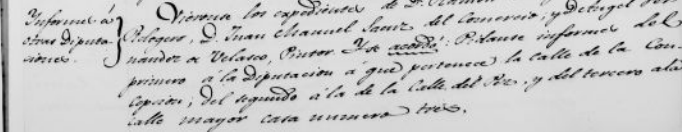 Informes á
otras Diputa
ciones.
Vieronse los expedientes de D. Ramon
Relogero, D. Juan Manuel Sainz del Comercio, y D. Angel Fer
nandez de Velasco, Pintor. Y se acordó: Pidanse informes del
primero á la diputacion á que pertenece la calle de la Con
cepcion; del segundo á la de la Calle del Pez, y del tercero á la
calle mayor casa numero tres.